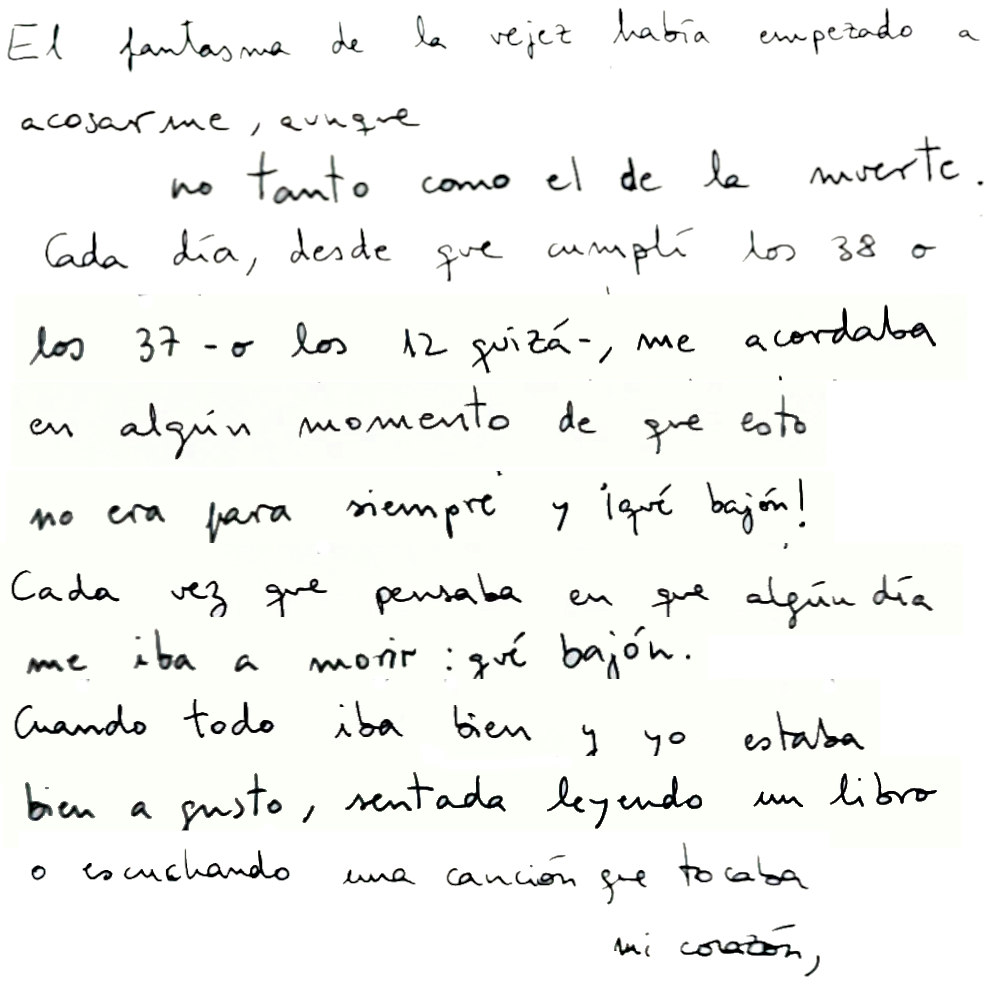 El fantasma de la vejez había empezado a
acosarme, aunque
no tanto como el de la muerte.
Cada día, desde que cumplí los 38 o
los 37 -o los 12 quizá-, me acordaba
en algún momento de que esto
no era para siempre y ¡qué bajón!
Cada vez que pensaba en que algún día
me iba a morir: qué bajón.
Cuando todo iba bien y yo estaba
bien a gusto, sentada leyendo un libro
o escuchando una canción que tocaba
mi corazón,